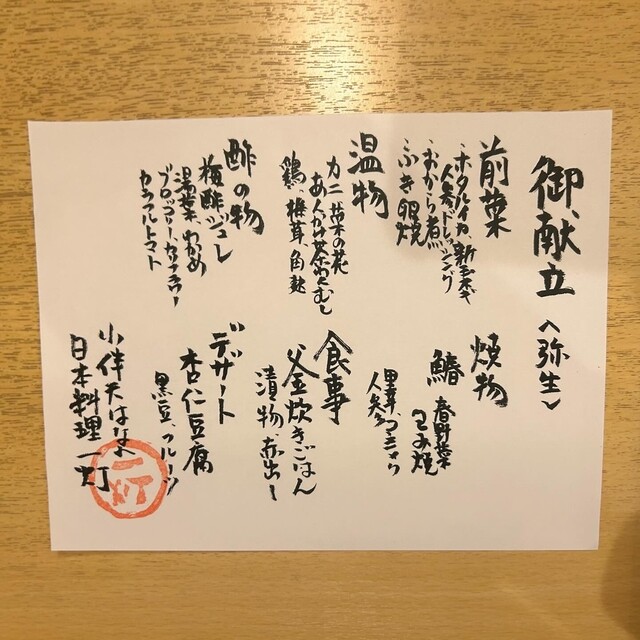 御献立 〈弥生〉
前菜
ホタルイカ、新玉ネギ
人参ドレッシング
おから煮
ふき卵焼
温物
カニ 菜の花
あんかけ茶わんむし
鶏、椎茸、角麩
酢の物
梅酢ジュレ
湯葉、わかめ
ブロッコリー、カリフラワー
カラフルトマト
焼物
鰆 春野菜
人参
食事
釜炊きごはん
漬物 赤出し
デザート
杏仁豆腐
黒豆、フルーツ
小伴天はなれ
日本料理 一灯
一灯